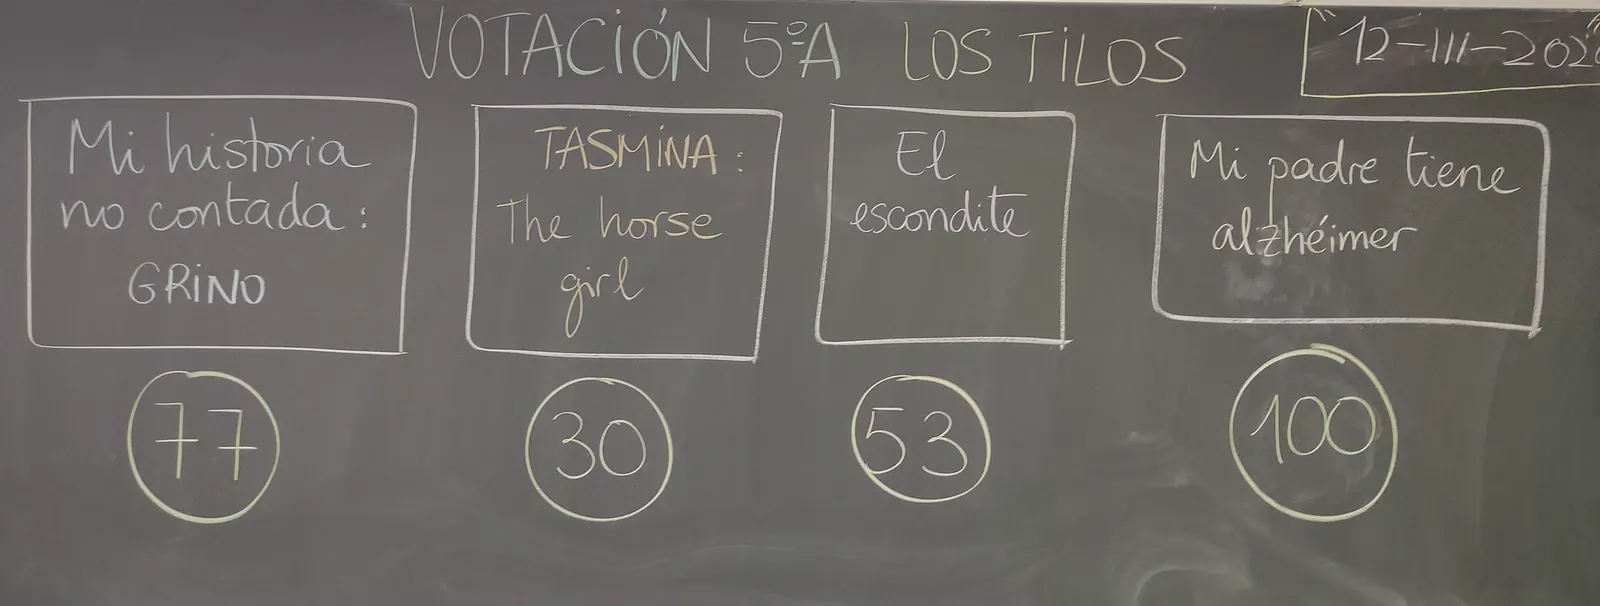 VOTACIÓN 5ºA LOS TILOS
Mi historia
no contada:
GRINO
77
TASMINA:
The horse
girl
30
El
escondite
53
Mi padre tiene
alzhéimer
100